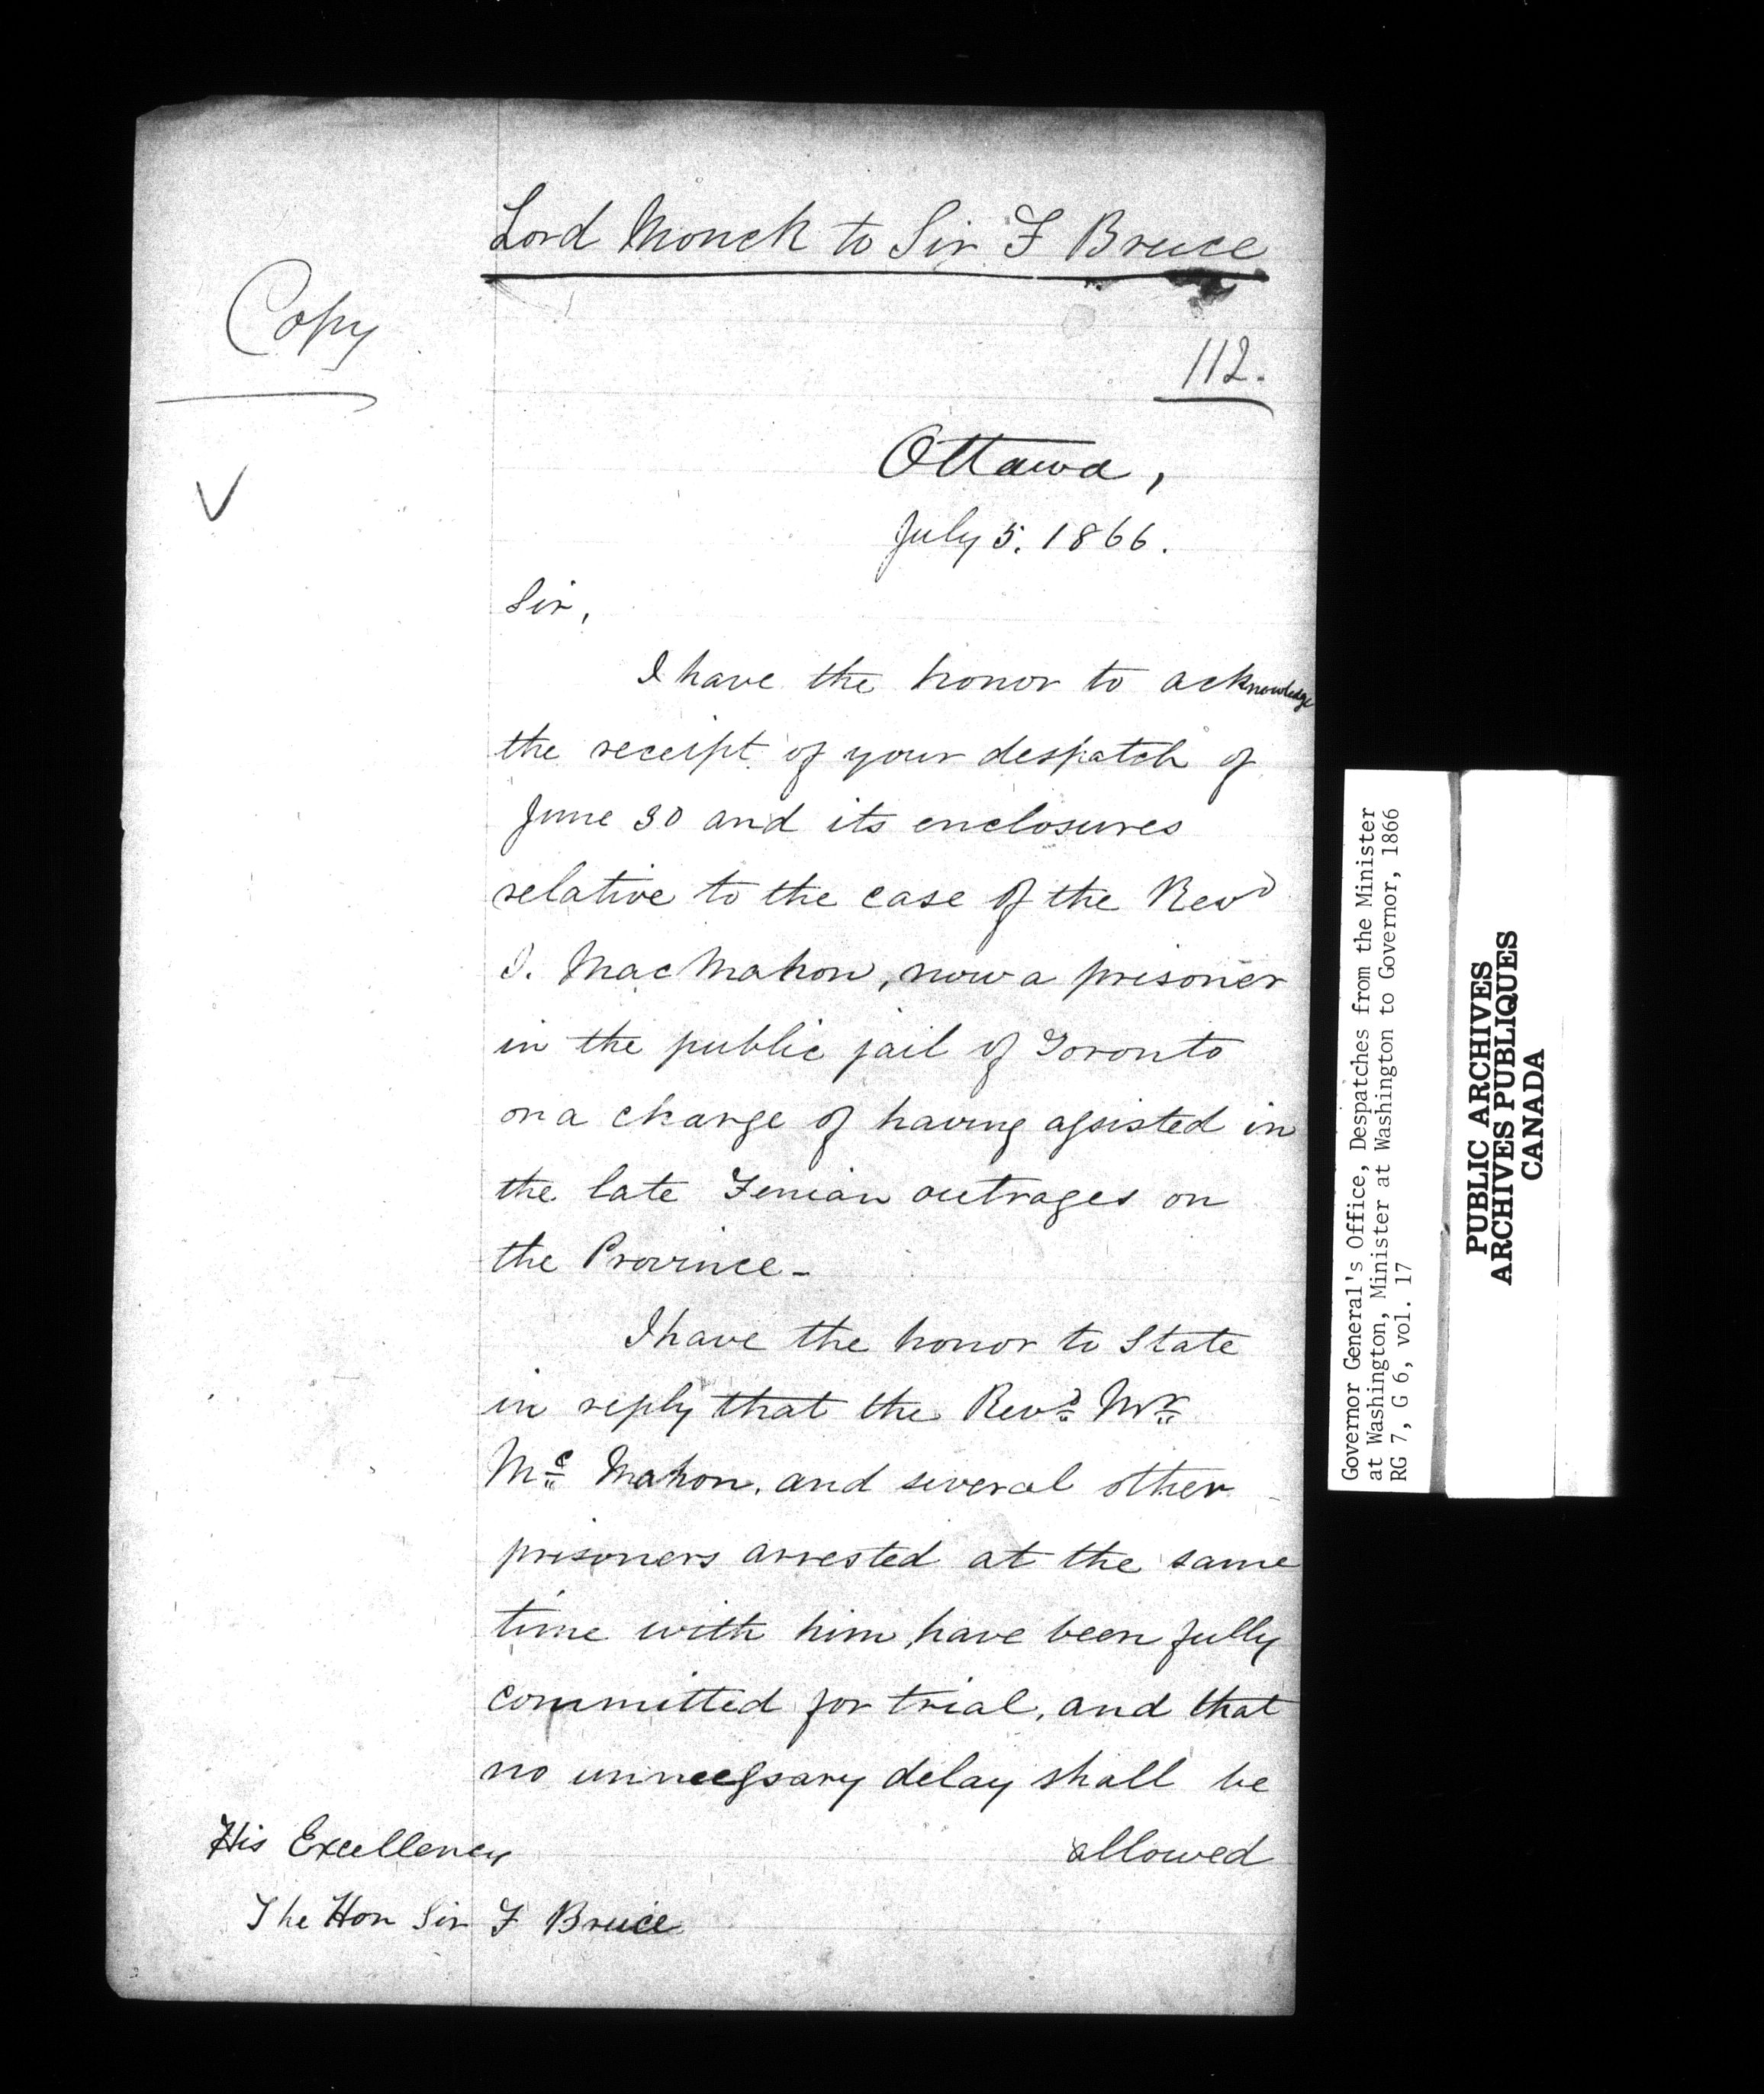 Lord Monck to Sir F Bruce
Copy
112.
Ottawa,
July 5. 1866.
Sir,
I have the honor to acknowledge
the receipt of your despatch of
June 30 and its enclosures
relative to the case of the Revd
J. MacMahon, now a prisoner
in the public jail of Toronto
on a charge of having assisted in
the late Fenian outrages on
the Province -
I have the honor to state
in reply that the Revd Mr
Mc Mahon, and several other
prisoners arrested at the same
time with him, have been fully
committed for trial, and that
no unnecessary delay shall be
allowed
His Excellency
The Hon Sir F Bruce
Governor General's Office, Despatches from the Minister
at Washington, Minister at Washington to Governor, 1866
RG 7, G 6, vol. 17
PUBLIC ARCHIVES
ARCHIVES PUBLIQUES
CANADA